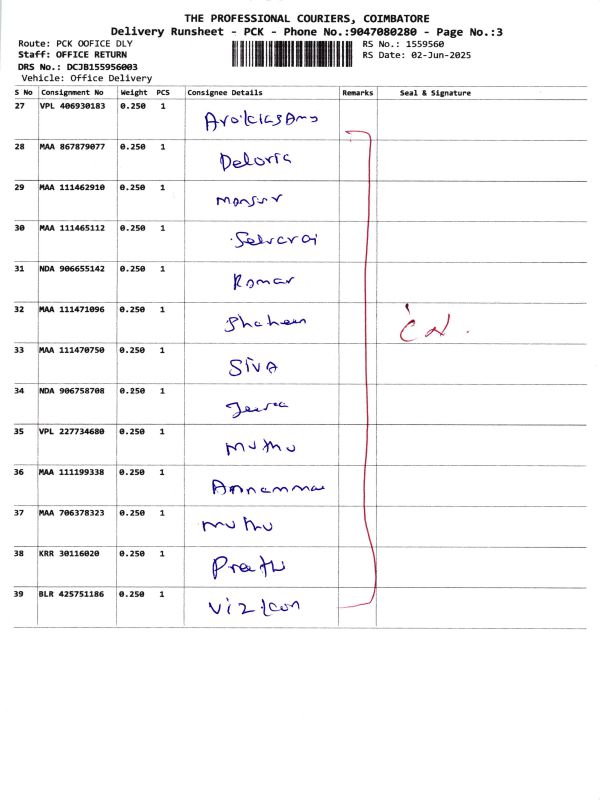 THE PROFESSIONAL COURIERS, COIMBATORE
Delivery Runsheet - PCK - Phone No.:9047080280 - Page No.:3
Route: PCK OOFICE DLY RS No.: 1559560
Staff: OFFICE RETURN RS Date: 02-Jun-2025
DRS No.: DCJB155956003
Vehicle: Office Delivery
S No Consignment No Weight PCS Consignee Details Remarks Seal & Signature
27 VPL 406930183 0.250 1
28 MAA 867879077 0.250 1 Deloria
29 MAA 111462910 0.250 1 Mansur
30 MAA 111465112 0.250 1 Selvaraj
31 NDA 906655142 0.250 1 Komar
32 MAA 111471096 0.250 1 Shaheen
33 MAA 111470750 0.250 1 SIVA
34 NDA 906758708 0.250 1
35 VPL 227734680 0.250 1 Muthu
36 MAA 111199338 0.250 1 Annamma
37 MAA 706378323 0.250 1 Muthu
38 KRR 30116020 0.250 1
39 BLR 425751186 0.250 1